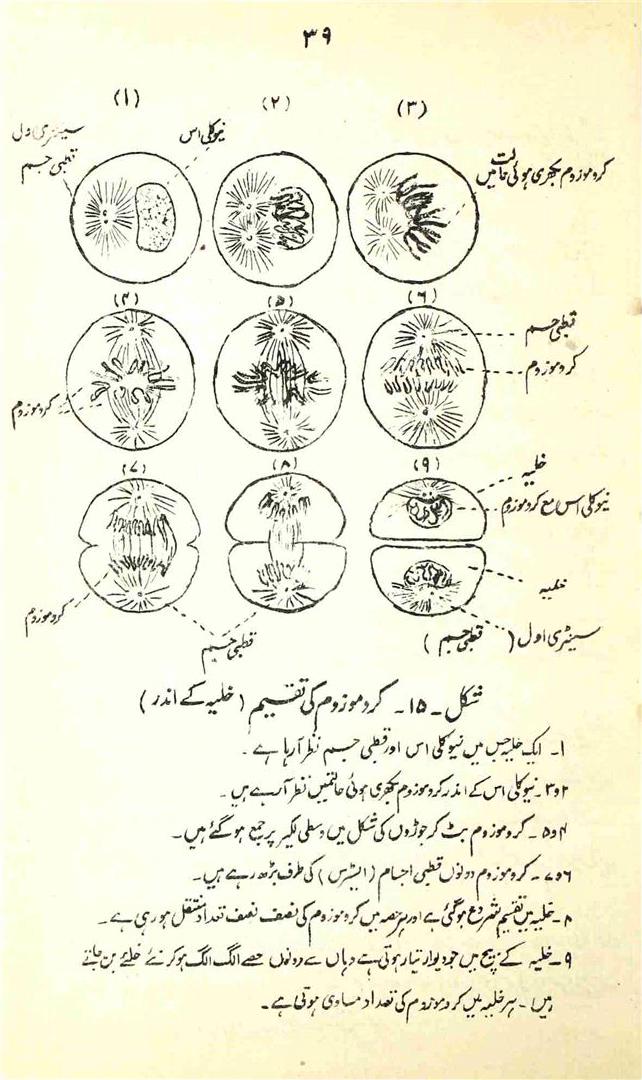 ۳۹
(۱)
(۲)
(۳)
سینٹری اول
قطبی جسم
نیوکلی اس
کروموزوم بکھری ہوئی حالت میں
(۴)
(۵)
(۶)
قطبی جسم
کروموزوم
کروموزوم
(۷)
(۸)
(۹)
خلیہ
نیوکلی اس مع کروموزوم
خلیہ
کروموزوم
قطبی جسم
سینٹری اول (قطبی جسم)
شکل ۔ ۱۵ ۔ کروموزوم کی تقسیم (خلیہ کے اندر)
۱۔ ایک خلیہ جس میں نیوکلی اس اور قطبی جسم نظر آرہا ہے ۔
۲ و ۳ ۔ نیوکلی اس کے اندر کروموزوم بکھری ہوئی حالت میں نظر آرہے ہیں ۔
۴ و ۵ ۔ کروموزوم بٹ کر جوڑوں کی شکل میں وسطی لکیر پر جمع ہوگئے ہیں۔
۶ و ۷ ۔ کروموزوم دونوں قطبی اجسام (ایسٹرس) کی طرف بڑھ رہے ہیں۔
۸ ۔ خلیہ میں تقسیم شروع ہوگئی ہے اور ہر حصہ میں کروموزوم کی نصف نصف تعداد منتقل ہو رہی ہے ۔
۹ ۔ خلیہ کے بیچ میں جو دیوار تیار ہوتی ہے وہاں سے دونوں حصے الگ الگ ہوکر نئے خلیے بن جاتے
ہیں ۔ ہر خلیہ میں کروموزوم کی تعداد مساوی ہوتی ہے ۔